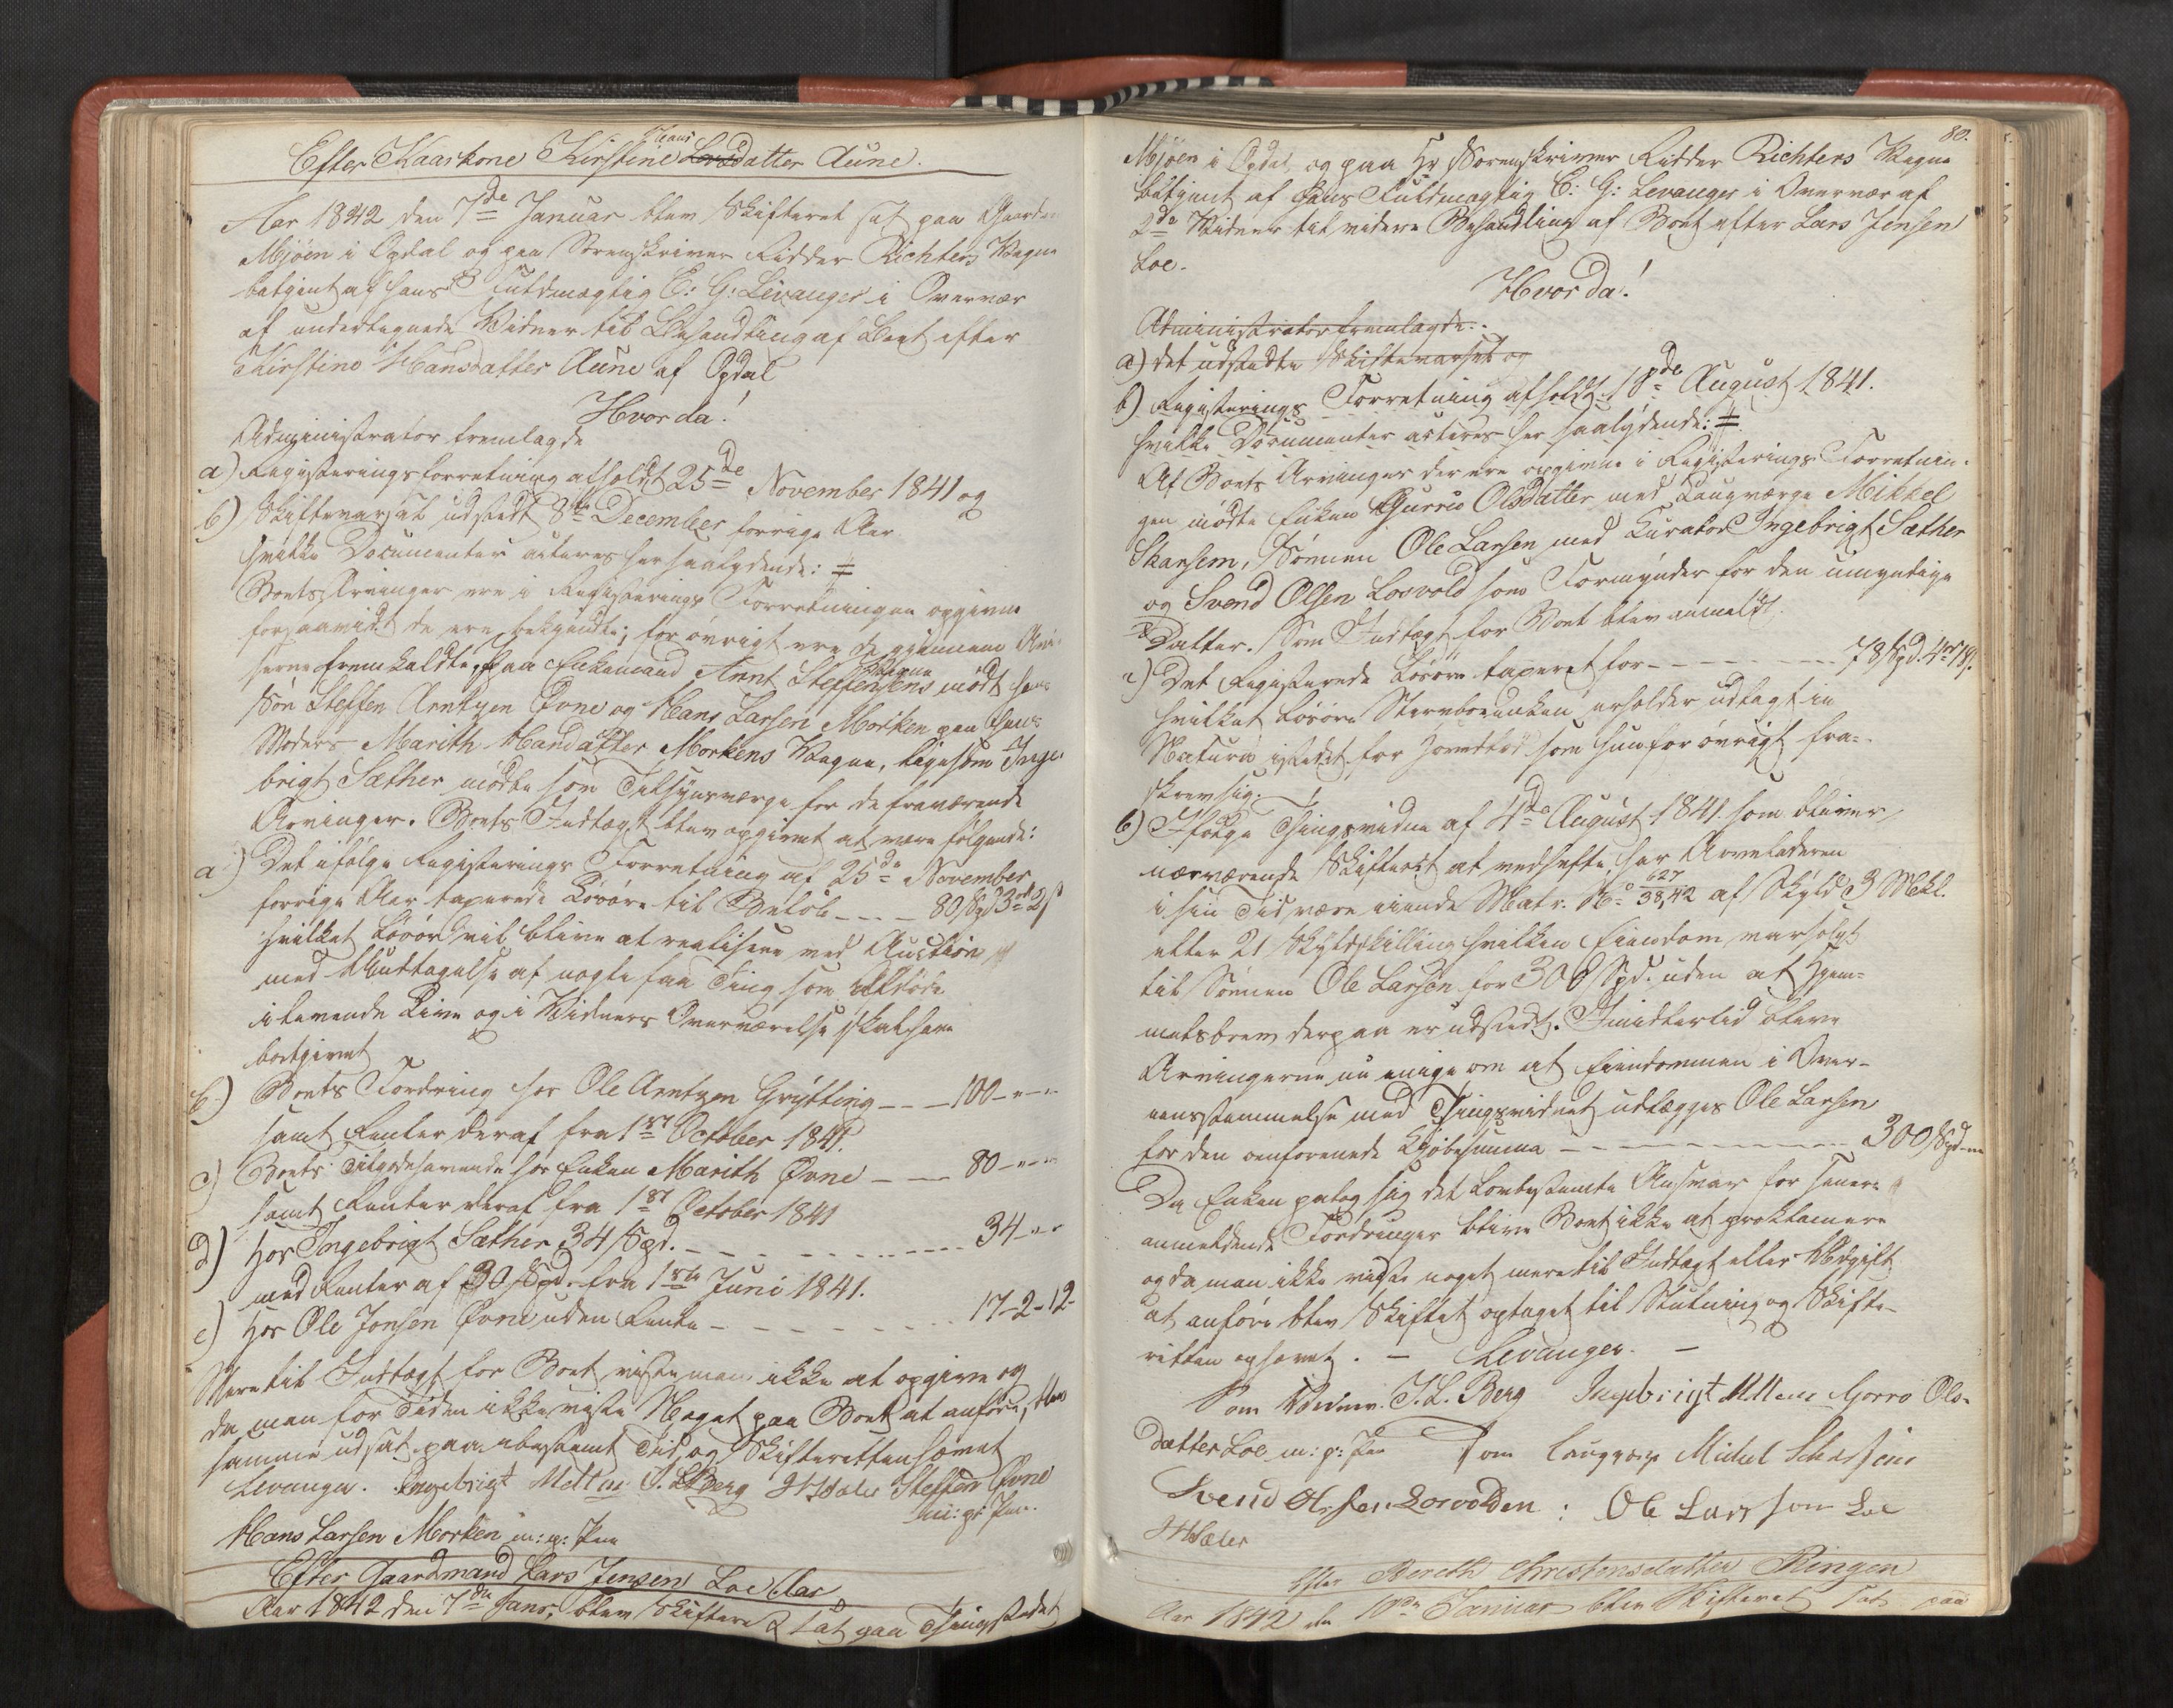 Efter Kaarkone Kirstine Hans Larsdatter Aune.
Aar 1842 den 7de Januar blev Skifteret sat paa Gaarden
Mjøen i Opdal og paa Sorenskriver Ridder Richters Vegne
betjent af hans Fuldmægtig C: G: Levanger i Overvær
af undertegnede Vidner til Behandling af Boet efter
Kirstine Hansdatter Aune af Opdal
Hvorda!
Administrator fremlagde
a) Registeringsforretning afholdt 25de November 1841 og
b) Skiftevarsel udstedt 8de December forrige Aar
hvilke Documenter acteres her saalydende: ≠
Boets Arvinger ere i Registerings Forretningen opgivne
forsaavidt de ere bekjendte; for øvrigt ere de gjennem
fremkaldte. Paa Enkemand Arnt Steffensens Vegne mødte hans
Søn Steffen Arntzen Øvne og Hans Larsen Morken paa hans
Moders Marith Handatter Morkens Vegne, ligesom Inge
brigt Sæther mødte som Tilsynsværge for de fraværende
Arvinger. Boets Indtægt blev opgivet at være følgende:
a) Det ifølge Registerings Forretning af 25de November
forrige Aar taxerede Løsøre til Beløb - - - 80 Spd 3 ort 2 s
hvilket Løsøre vil blive at realisere ved Auction
med Undtagelse af nogle faa Ting som Afdøde
i levende Live og i Vidners Overværelse skal have
bortgivet
b) Boets Fordring hos Ole Arntzen Grytting - - - 100 - " - "
samt Renter deraf fra 1st October 1841.
c) Boets Tilgodehavende hos Enken Marith Øvne - - - 80 - " - "
samt Renter deraf fra 1st October 1841
d) Hos Ingebrigt Sæther 34 Spd. - - - - - - - 34 - " - "
med Renter af 30 Spd. fra 1ste Juni 1841.
e) Hos Ole Jonsen Øvne uden Rente - - - - - - 17 - 2 - 12 -
Mere til Indtægt for Boet viste man ikke at opgive og
da man for Tiden ikke viste Noget paa Boet at anføre, blev
samme udsat paa ubestemt Tid og Skifteretten hævet
Levanger. Ingebrigt Mellem J. L. Berg Steffen Øvne
m: p: Pen.
Hans Larsen Morken m: p: Pen
Efter Gaardmand Lars Jensen Loe
Aar 1842 den 7de Janr. blev Skifteret sat paa Thingstedet
80.
Mjøen i Opdal, og paa Hr Sorenskriver Ridder Richters Vegne
betjent af hans Fuldmægtig C: G: Levanger i Overvær af
2de Vidner til videre Behandling af Boet efter Lars Jensen
Loe.
Hvorda!
Administrator fremlagde.
a) det udstedte Skiftevarsel og
b) Registerings Forretning afholdt 18de August 1841.
hvilke Documenter acteres her saalydende: ≠
Af Boets Arvinger der ere opgivne i Registerings Forretnin-
gen mødte Enken Gurro Olsdatter med Laugværge Mikkel
Skarsem, Sønnen Ole Larsen med Kurator Ingebrigt Sæther
og Svend Olsen Losvold som Formynder for den umyndige
Datter. Som Indtægt for Boet blev anmeldt.
a) Det Registerede Løsøre taxeret for - - - - - - - 78 Spd. 4 ort
hvilket Løsøre Stervboenken erholder udlagt in
Natura istedet for som hun for øvrigt fra-
skrev sig.
b) Ifølge Thingsvidne af 4de August 1841 som bliver
nærværende Skifteact at vedhefte, har Arveladeren
i sin Tid være eiende Matr. No 627/38,42 af Skyld 3 Mkl.
eller 21 Skyldskilling hvilken Eiendom var solgt
til Sønnen Ole Larsen for 300 Spd. uden at Hjem-
melsbrev derpaa er udstedt. Imidlertid bleve
Arvingerne nu enige om at Eiendommen i Over-
eensstemmelse med Thingsvidnet udlægges Ole Larsen
for den ovenforevnte Kjøbesumma - - - - - - - 300 Spd - "
Da Enken patog sig det Lovbestemte Ansvar for senere
anmeldende Fordringer bliver Boet ikke at proklamere
og da man ikke viste noget mere til Indtægt eller Udgift
at anføre blev Skiftet optaget til Slutning og Skifte-
retten ophævet. - Levanger. -
Som Vidner. J. L. Berg Ingebrigt Mellem Gorro Ols-
datter Loe m: p: Pen Som laugværge Mickel
Svend Olsen Losvolden : Ole Larsson Loe
Efter Bereth Christensdatter Ringen
Aar 1842 den 10de Januar blev Skifteret sat paa